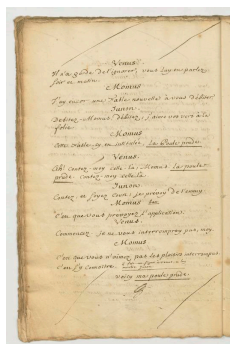 Venus
Il n'a garde de l'ignorer, vous luy en parlez
soir et matin.
Momus
J'ay encor une Fable nouvelle a vous debiter
Junon
Debitez, Momus, debitez, j'aime vos vers à la
folie.
Momus
cette Fable-cy est intitulée, la poule prude.
Venus
Ah! contez-moy celle-là, Momus, la poule
prude. contez-moy celle-là
Junon
Contez, et soyez court. je prevoy de l'ennuy.
Momus bas
C'est que vous prevoyez l'application.
Venus
Commencez, je ne vous interrompray pas, moy.
Momus
C'est que vous n'aimez pas les plaisirs interrompus
voicy ma poule prude.